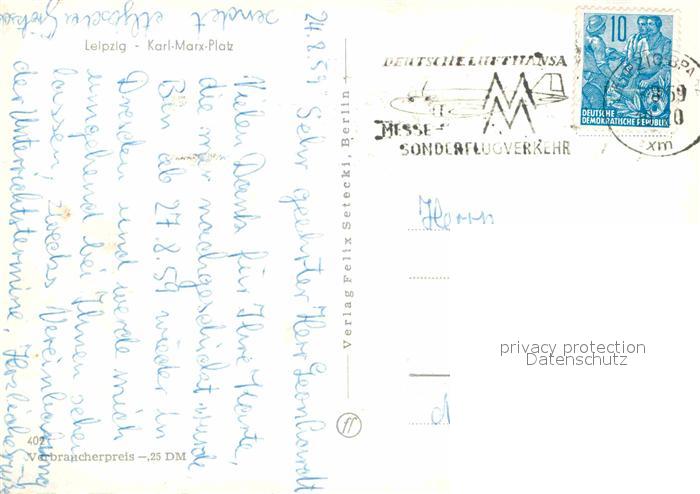 Leipzig - Karl-Marx-Platz
24.8.59
Sehr geehrter Herr Leonhardt
Vielen Dank für Ihre Karte,
die mir nachgeschickt wurde
Bin ab 27.8.59 wieder in
Dresden und werde mich
umgehend bei Ihnen sehen
lassen, zwecks Vereinbarung
der Unterrichtstermine. Herzliche
sendet
402
Verbraucherpreis -,25 DM
Verlag Felix Setecki, Berlin
DEUTSCHE LUFTHANSA
MM
MESSE-
SONDERFLUGVERKEHR
10
DEUTSCHE
DEMOKRATISCHE REPUBLIK
xm
Herrn
privacy protection
Datenschutz